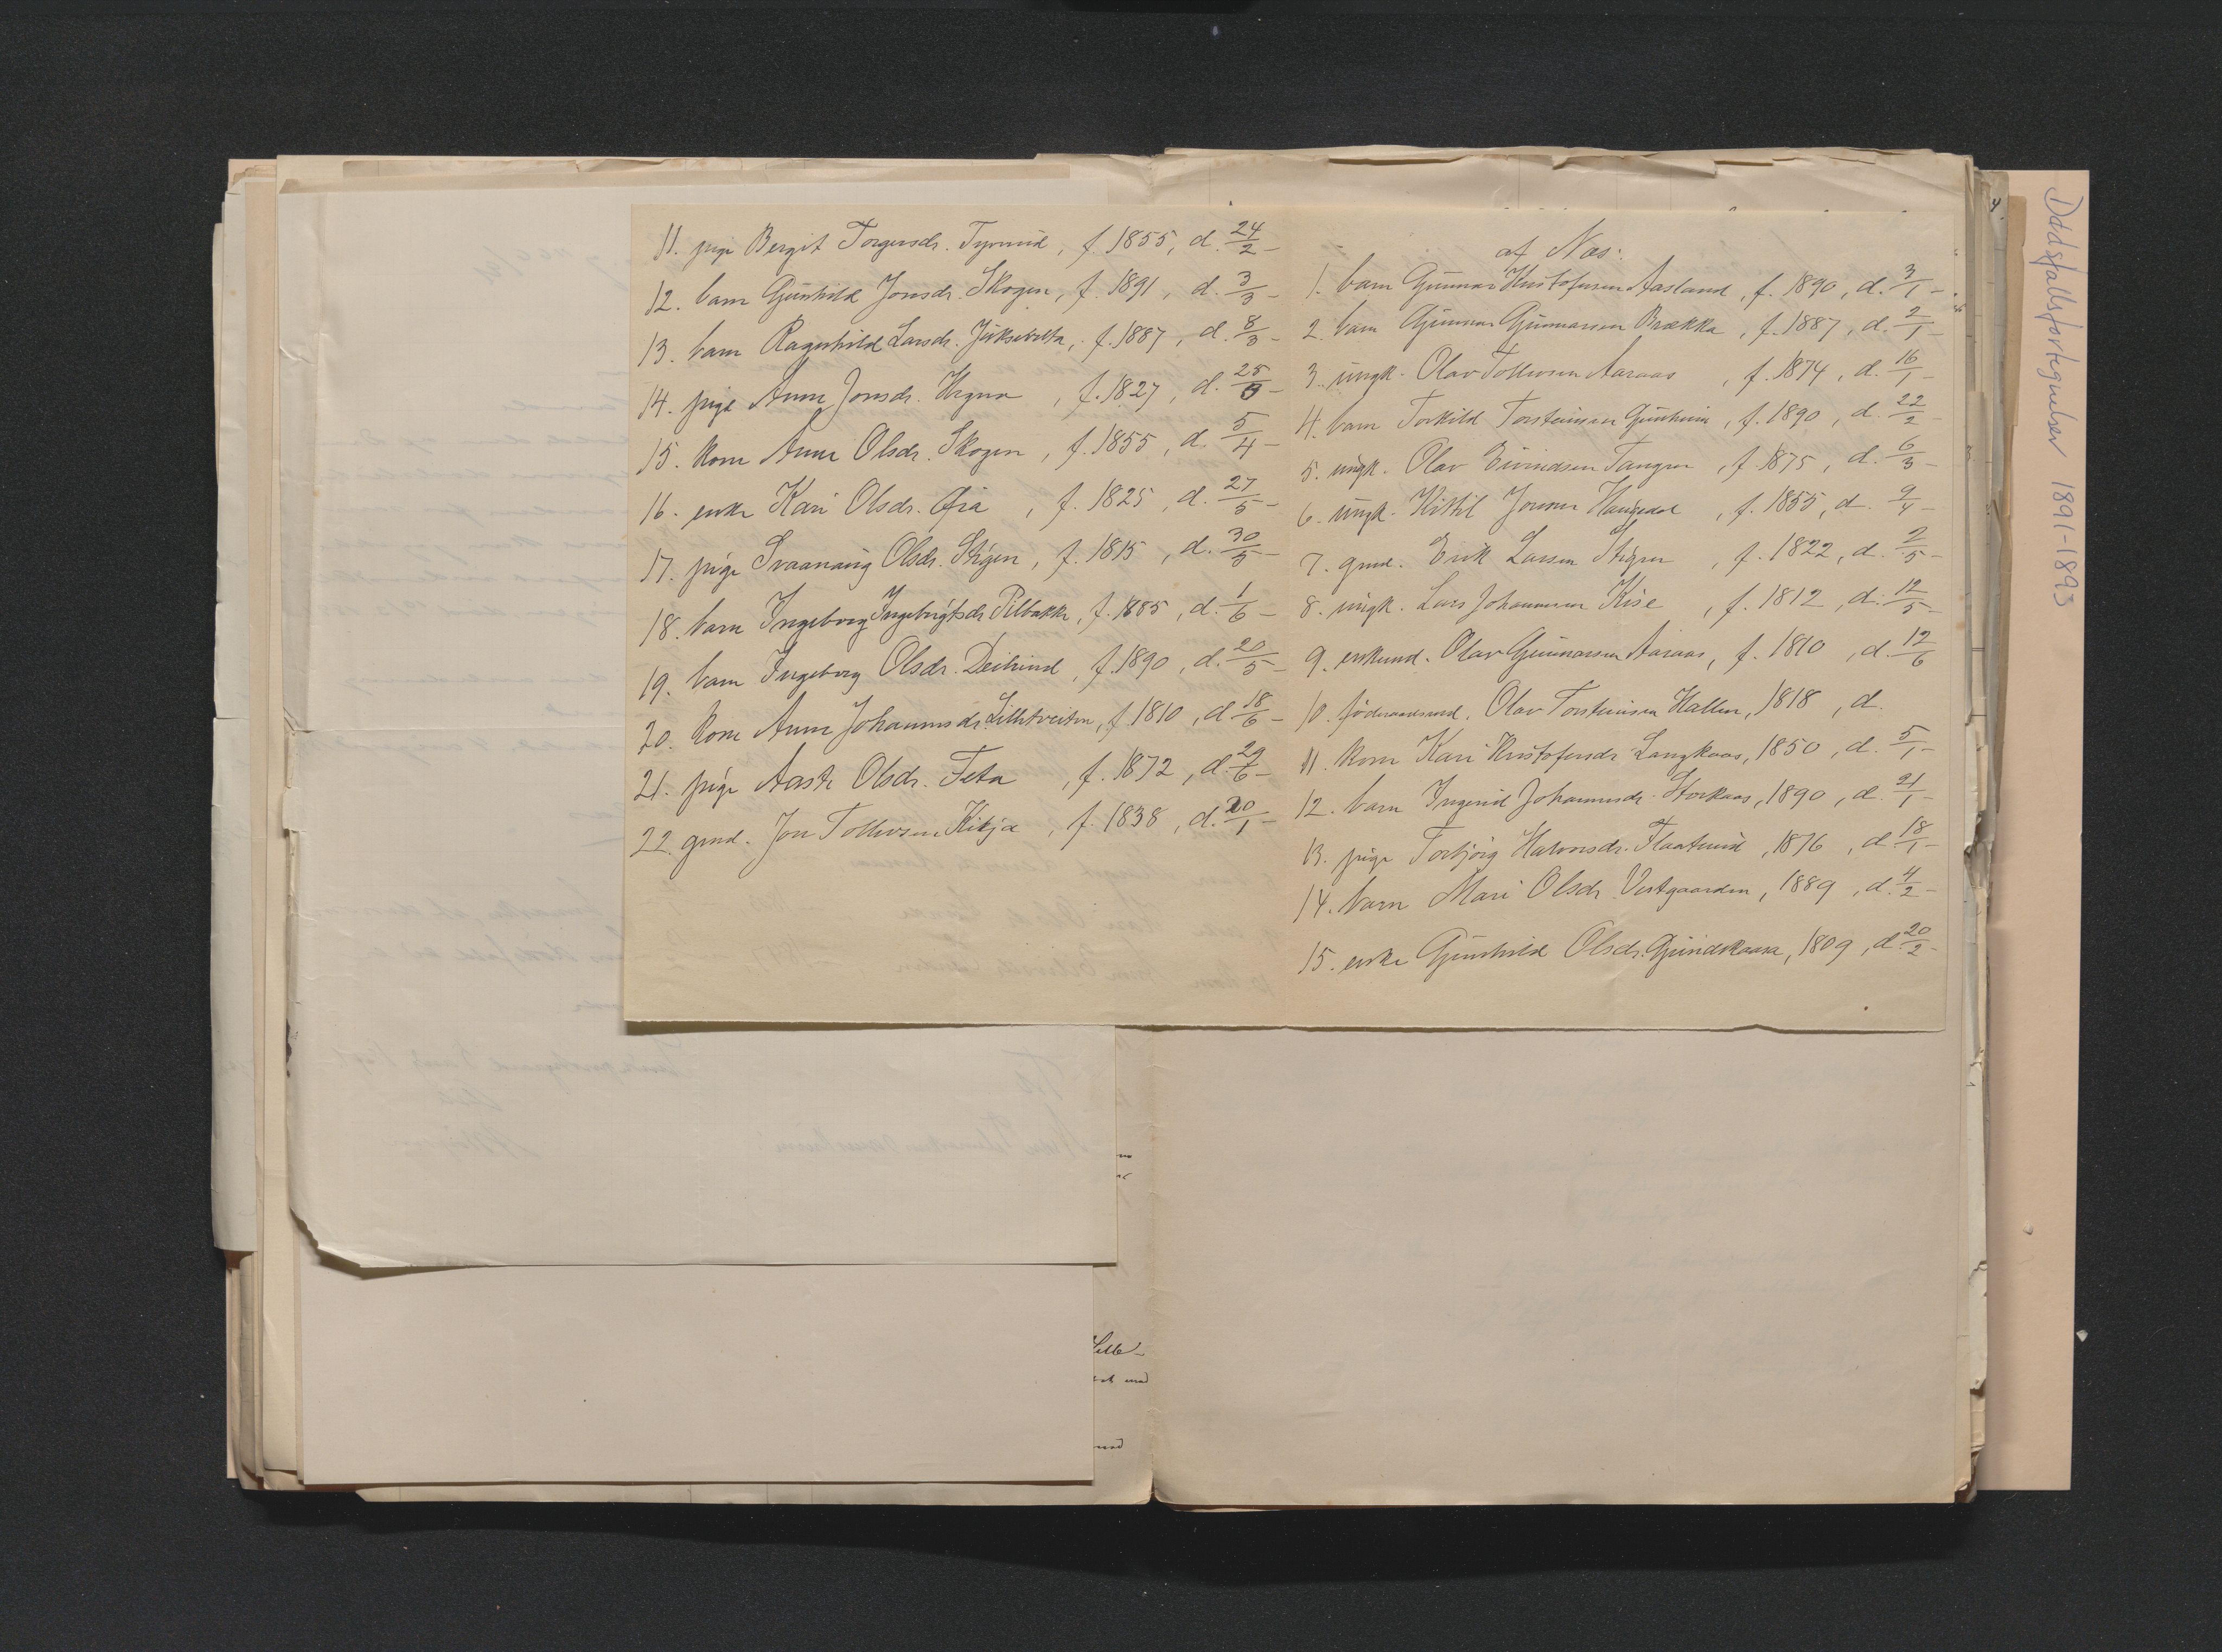 11. pige Bergit Torgersdr. Tyrmid, f. 1855, d. 24/2 -
12. barn Gunhild Jonsdr. Skogen, f. 1891, d. 3/3 -
13. barn Ragnhild Larsdr. f. 1887, d. 8/3 -
14. pige Anne Jonsdr. Hegna, f. 1827, d.
15. kone Anne Olsdr. Skogen, f. 1855, d. 5/4 -
16. enke Kari Olsdr. f. 1825, d. 27/5 -
17. pige Svaanaug Olsdr. Stigen, f. 1815, d. 30/5 -
18. barn Ingeborg Ingebrigtsdr. Pilbakke, f. 1885, d. 1/6 -
19. barn Ingeborg Olsdr. f. 1890, d. 20/5 -
20. kone Anne Johannesdr. Lilletveiten, f. 1810, d. 18/6 -
21. pige Aaste Olsdr. Teta, f. 1872, d. 29/6 -
22. gmd. Jon Tollevsen f. 1838, d. 20/1 -
af Nes:
1. barn Gunnar Kristofersen Aasland, f. 1890, d. 3/1 -
2. barn Gunnar Gunnarsen Brekka, f. 1887, d. 2/1 -
3. ungk. Olav Tollevsen Aaraas, f. 1874, d. 16/1 -
4. barn Torkild Torsteinsen Gunheim, f. 1890, d. 22/2
5. ungk. Olav Eivindsen Tangen, f. 1875, d. 6/3 -
6. ungk. Kittil Jonsen Haugedal, f. 1855, d. 9/4 -
7. gmd. Erik Larsen Stigen, f. 1822, d. 2/5 -
8. ungk. Lars Johannesen Kise, f. 1812, d. 12/5 -
9. enkemd. Olav Gunnarsen Aaraas, f. 1810, d. 12/6
10. föderaadsmd. Olav Torsteinsen Hallen, 1818, d.
11. kone Kari Kristofersdr. Langkaas, 1850, d. 5/1 -
12. barn Ingerid Johannesdr. Storkaas, 1890, d. 21/1 -
13. pige Torbjörg Halvorsdr. Flaatuvd, 1876, d. 18/1 -
14. barn Mari Olsdr. Vestgaarden, 1889, d. 4/2 -
15. enke Gunhild Olsdr. Grindekaasa, 1809, d. 20/2 -
Dødsfallsfortegnelser 1891-1893
4